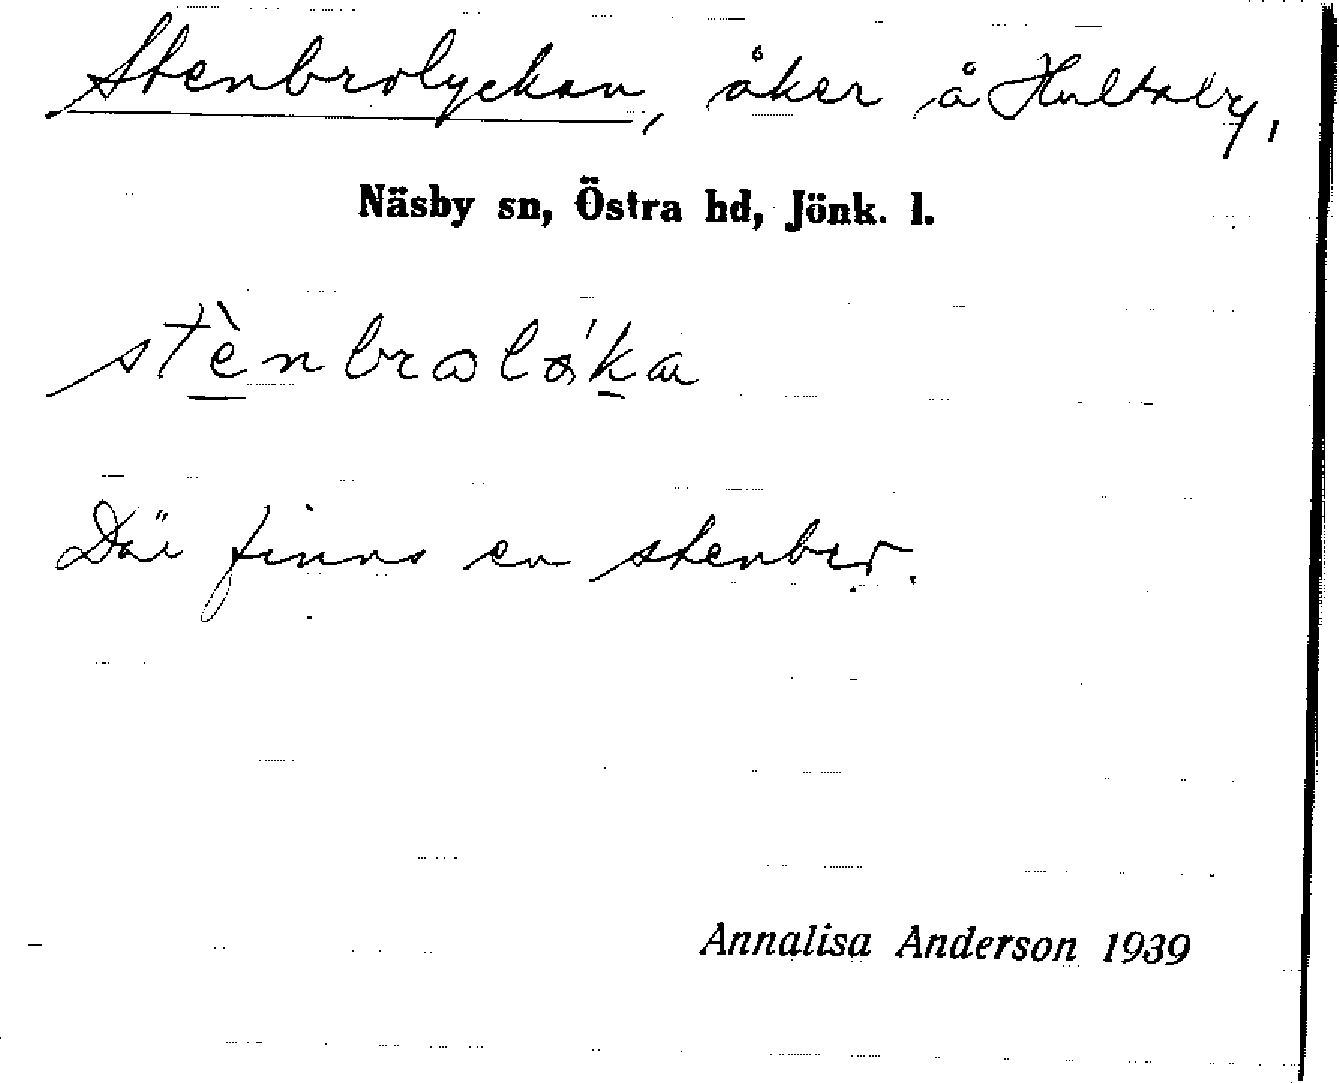 Stenbrolyckan, åker å Hultaby,
Näsby sn, Östra hd, Jönk. l.
Där finns en stenbro.
Annalisa Anderson 1939